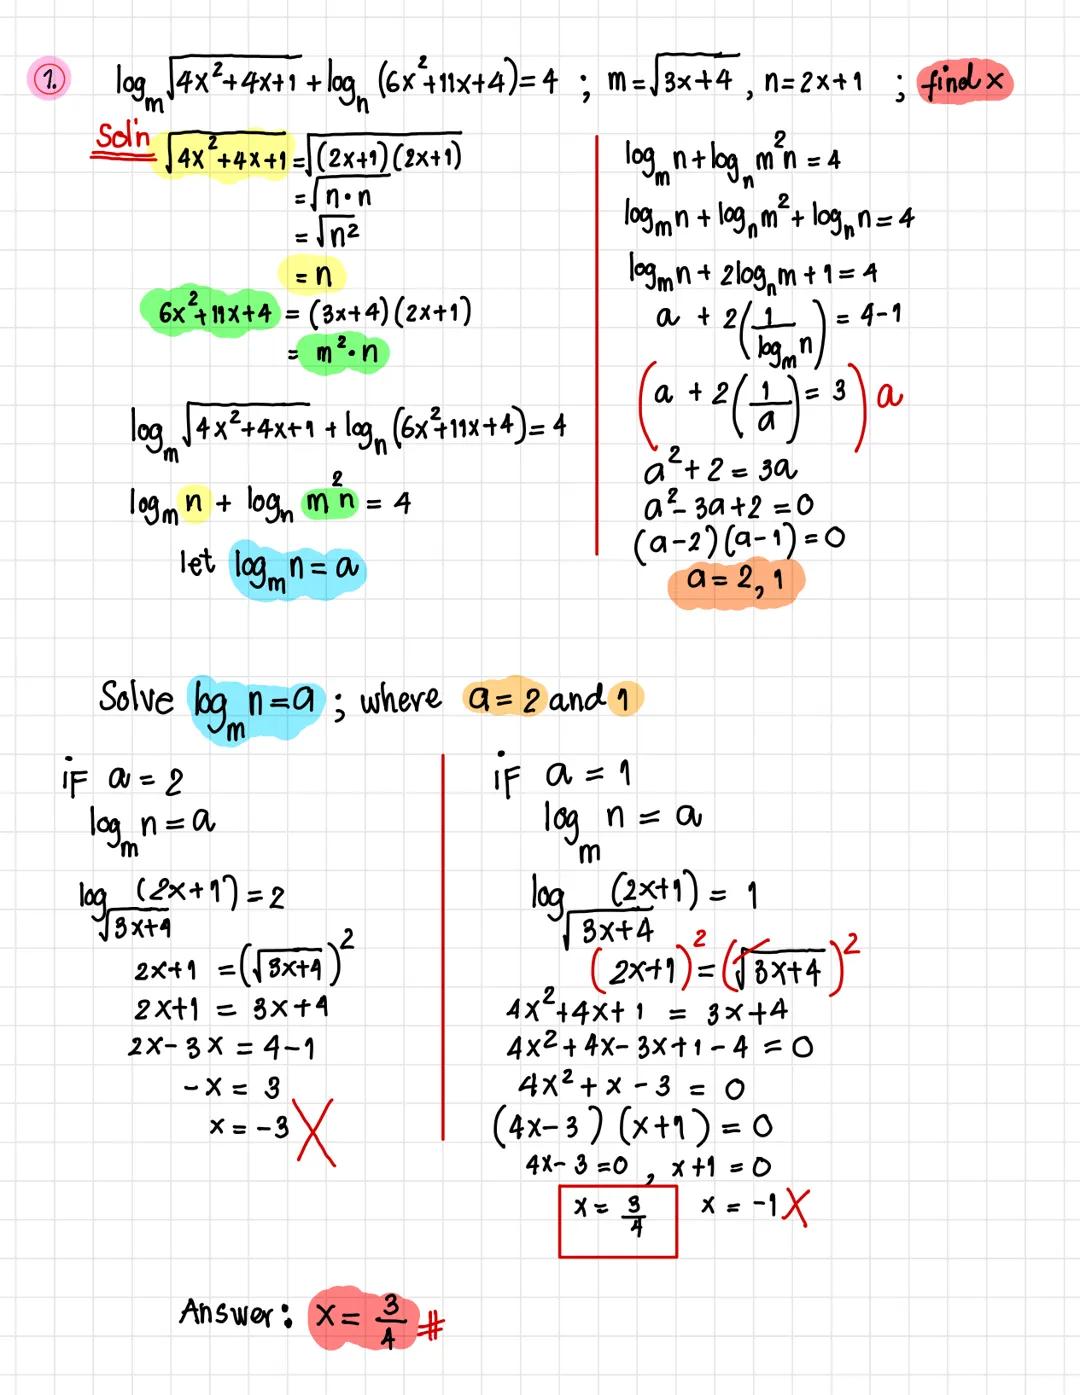 1. log_m √(4x²+4x+1) + log_n (6x²+11x+4) = 4 ; m = √(3x+4) , n = 2x+1 ; find x
Sol'n √(4x²+4x+1) = √((2x+1)(2x+1))
= √(n·n)
= √(n²)
= n
6x²+11x+4 = (3x+4)(2x+1)
= m²·n
log_m √(4x²+4x+1) + log_n (6x²+11x+4) = 4
log_m n + log_n m²n = 4
let log_m n = a
log_m n + log_n m²n = 4
log_m n + log_n m² + log_n n = 4
log_m n + 2log_n m + 1 = 4
a + 2(1/log_m n) = 4-1
(a + 2(1/a) = 3) a
a² + 2 = 3a
a² - 3a + 2 = 0
(a-2)(a-1) = 0
a = 2, 1
Solve log_m n = a ; where a = 2 and 1
if a = 2
log_m n = a
log_√(3x+4) (2x+1) = 2
2x+1 = (√(3x+4))²
2x+1 = 3x+4
2x - 3x = 4-1
-x = 3
x = -3 X
if a = 1
log_m n = a
log_√(3x+4) (2x+1) = 1
(2x+1)² = (√(3x+4))²
4x²+4x+1 = 3x+4
4x²+4x-3x+1-4 = 0
4x²+x-3 = 0
(4x-3)(x+1) = 0
4x-3 = 0 , x+1 = 0
x = 3/4 x = -1 X
Answer: x = 3/4 #